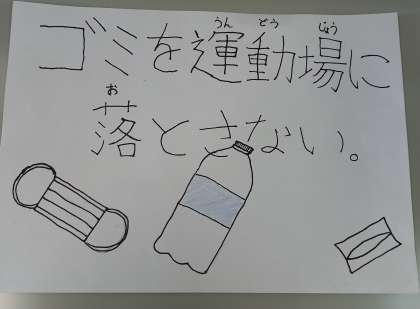 うん どう じょう
ゴミを運動場に
お
落とさない。